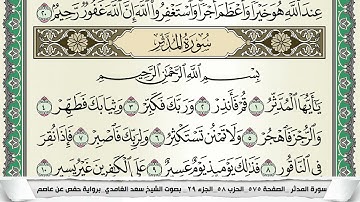 عِندَ ٱللَّهِ هُوَ خَيْرًا وَأَعْظَمَ أَجْرًا وَٱسْتَغْفِرُوا۟ ٱللَّهَ إِنَّ ٱللَّهَ غَفُورٌ رَّحِيمٌ ٢٠
سُورَةُ المُدَّثِّر
بِسْمِ ٱللَّهِ ٱلرَّحْمَٰنِ ٱلرَّحِيمِ
يَٰٓأَيُّهَا ٱلْمُدَّثِّرُ ١ قُمْ فَأَنذِرْ ٢ وَرَبَّكَ فَكَبِّرْ ٣ وَثِيَابَكَ فَطَهِّرْ ٤
وَٱلرُّجْزَ فَٱهْجُرْ ٥ وَلَا تَمْنُن تَسْتَكْثِرُ ٦ وَلِرَبِّكَ فَٱصْبِرْ ٧ فَإِذَا نُقِرَ
فِى ٱلنَّاقُورِ ٨ فَذَٰلِكَ يَوْمَئِذٍ يَوْمٌ عَسِيرٌ ٩ عَلَى ٱلْكَٰفِرِينَ غَيْرُ يَسِيرٍ
سورة المدثر _ الصفحة ٥٧٥ _ الحزب ٥٨ _ الجزء ٢٩ _ بصوت الشيخ سعد الغامدي _ برواية حفص عن عاصم